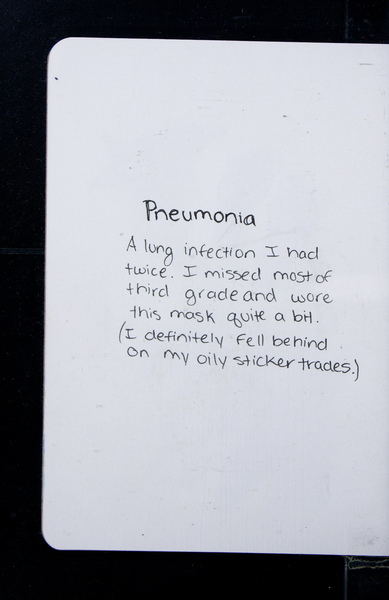 Pneumonia
A lung infection I had
twice. I missed most of
third grade and wore
this mask quite a bit.
(I definitely fell behind
on my oily sticker trades.)